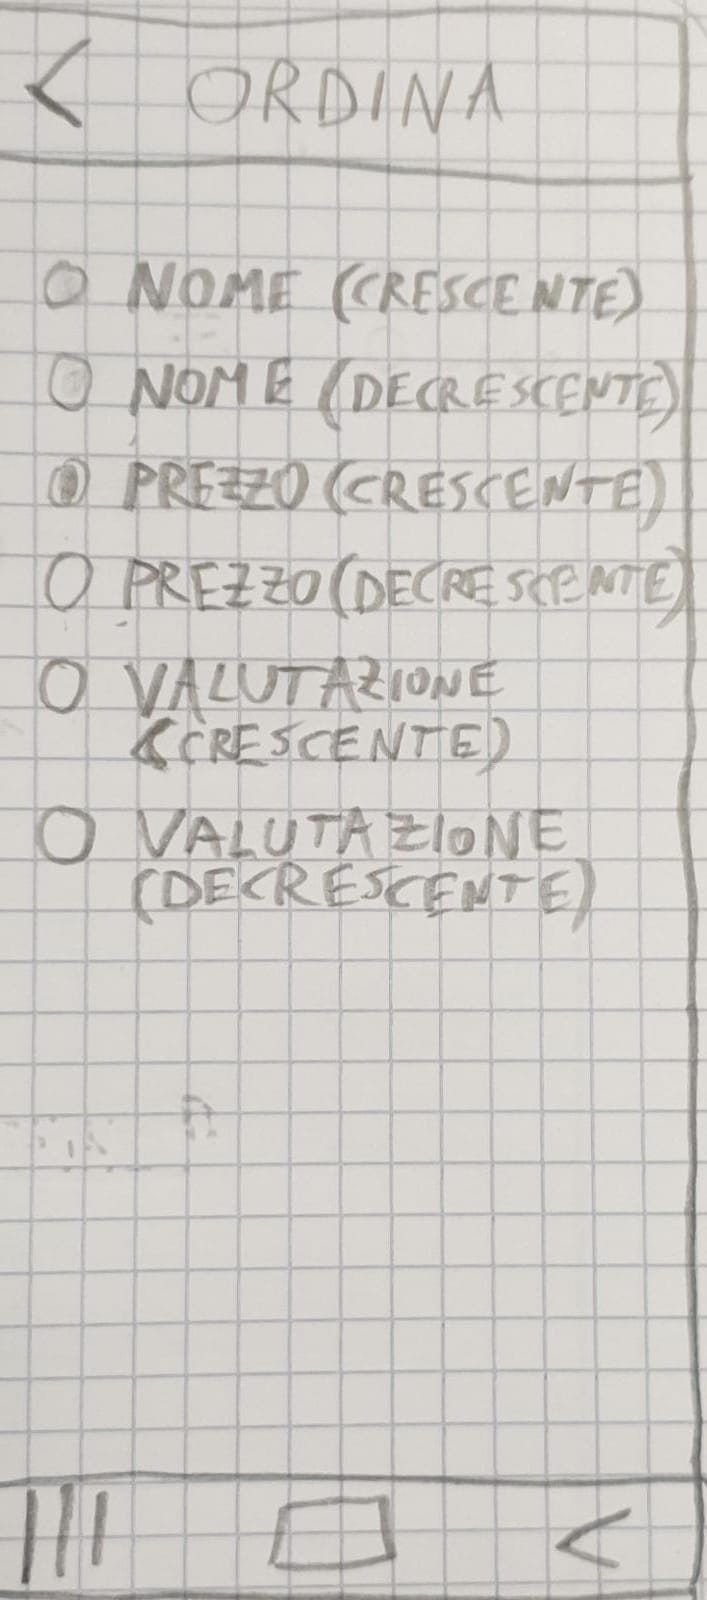 ORDINA
NOME (CRESCENTE)
NOME (DECRESCENTE)
PREZZO (CRESCENTE)
PREZZO (DECRESCENTE)
VALUTAZIONE
(CRESCENTE)
VALUTAZIONE
(DECRESCENTE)